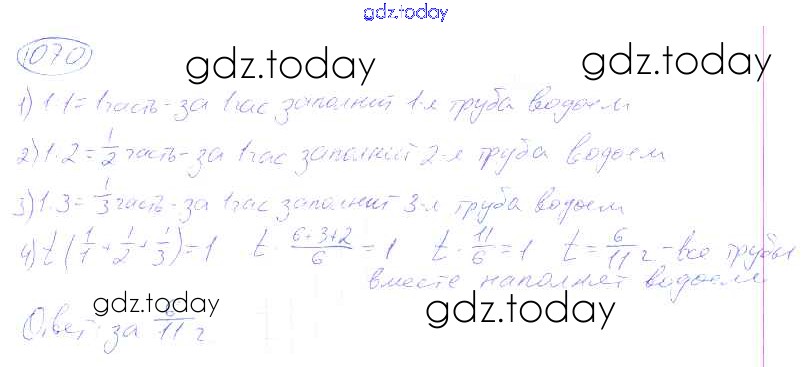 gdz.today
1070
gdz.today gdz.today
1) 1:1=1 часть - за 1 час заполнит 1-я труба водоем
2) 1:2=1/2 часть - за 1 час заполнит 2-я труба водоем
3) 1:3=1/3 часть - за 1 час заполнит 3-я труба водоем
4) t(1/1+1/2+1/3)=1 t·(6+3+2)/6=1 t·11/6=1 t=6/11 ч - все трубы
вместе наполнят водоем
gdz.today gdz.today gdz.today
Ответ: за 6/11 ч